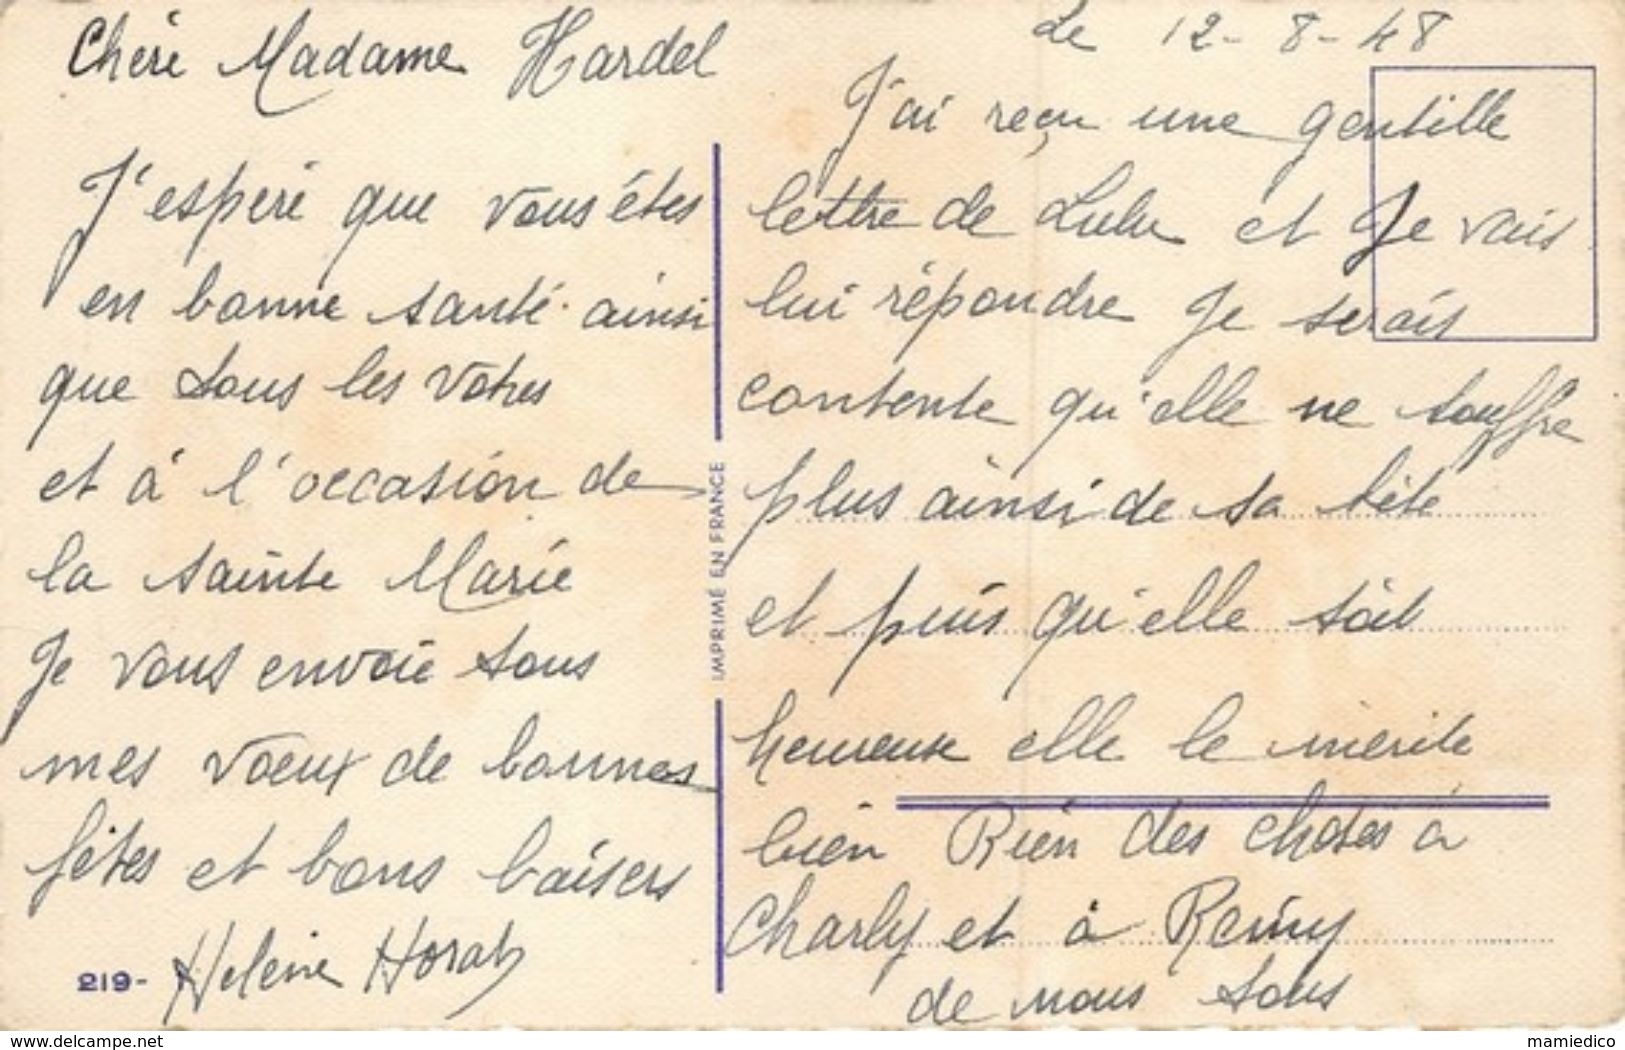 Chère Madame Hardel
J'espère que vous êtes
en bonne santé. ainsi
que tous les vôtres
et à l'occasion de
la sainte Marie
Je vous envoie tous
mes voeux de bonnes
fêtes et bons baisers
Helène Horab
219-
IMPRIMÉ EN FRANCE
Le 12-8-48
J'ai reçu une gentille
lettre de Lulu et Je vais
lui répondre Je serais
contente qu'elle ne souffre
plus ainsi de sa tête
et puis qu'elle soit
heureuse elle le mérite
bien Bien des choses à
Charly et à Remy
de nous tous
www.delcampe.net
mamiedico